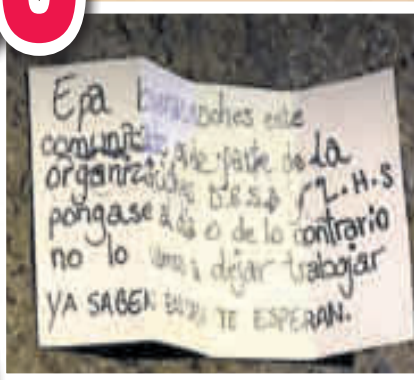 Epa buenas noches este
comunicado de parte de la
organización L.H.S
pongase o de lo contrario
no lo vamos a dejar trabajar
YA SABEN TE ESPERAN.